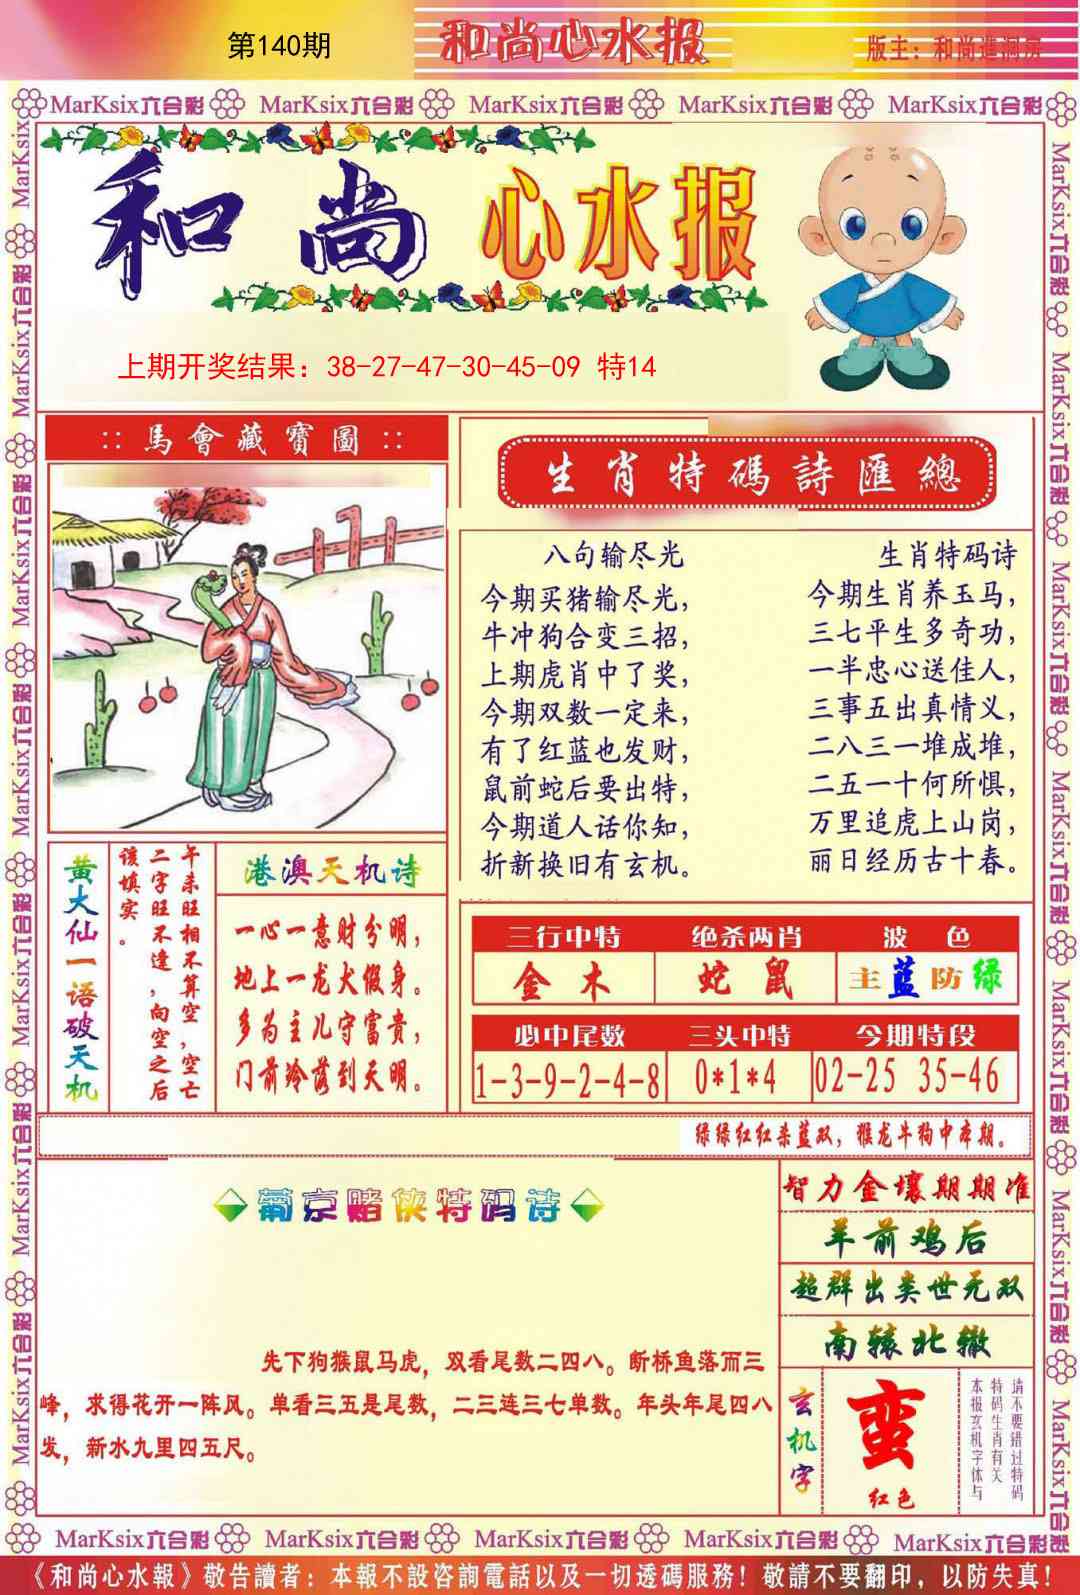 第140期
和尚心水报
版主：和尚進洞房
MarKsix六合彩 MarKsix六合彩 MarKsix六合彩 MarKsix六合彩 MarKsix六合彩
和尚 心水报
上期开奖结果：38-27-47-30-45-09 特14
:: 馬會藏寶圖 ::
生肖特碼詩匯總
八句输尽光
今期买猪输尽光，
牛冲狗合变三招，
上期虎肖中了奖，
今期双数一定来，
有了红蓝也发财，
鼠前蛇后要出特，
今期道人话你知，
折新换旧有玄机。
生肖特码诗
今期生肖养玉马，
三七平生多奇功，
一半忠心送佳人，
三事五出真情义，
二八三一堆成堆，
二五一十何所惧，
万里追虎上山岗，
丽日经历古十春。
黄大仙一语破天机
午未旺相不算空，空亡
二字旺不逢，向空之后
该填实。
港澳天机诗
一心一意财分明，
地上一龙大假身。
多为主儿守富贵，
门前冷落到天明。
三行中特 绝杀两肖 波色
金木 蛇鼠 主蓝防绿
必中尾数 三头中特 今期特段
1-3-9-2-4-8 0*1*4 02-25 35-46
绿绿红红杀蓝双，猴龙牛狗中本期。
葡京赌侠特码诗
先下狗猴鼠马虎，双看尾数二四八。断桥鱼落而三
峰，求得花开一阵风。单看三五是尾数，二三连三七单数。年头年尾四八
发，新水九里四五尺。
智力金壤期期准
羊前鸡后
超群出类世无双
南辕北辙
玄机字
蛮
红色
请不要错过特码
特码生肖有关
本报玄机字体与
MarKsix六合彩 MarKsix六合彩 MarKsix六合彩 MarKsix六合彩 MarKsix六合彩
《和尚心水報》敬告讀者：本報不設咨詢電話以及一切透碼服務！敬請不要翻印，以防失真！